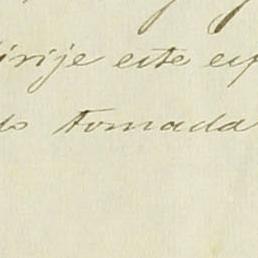 dirije este esp
do tomada